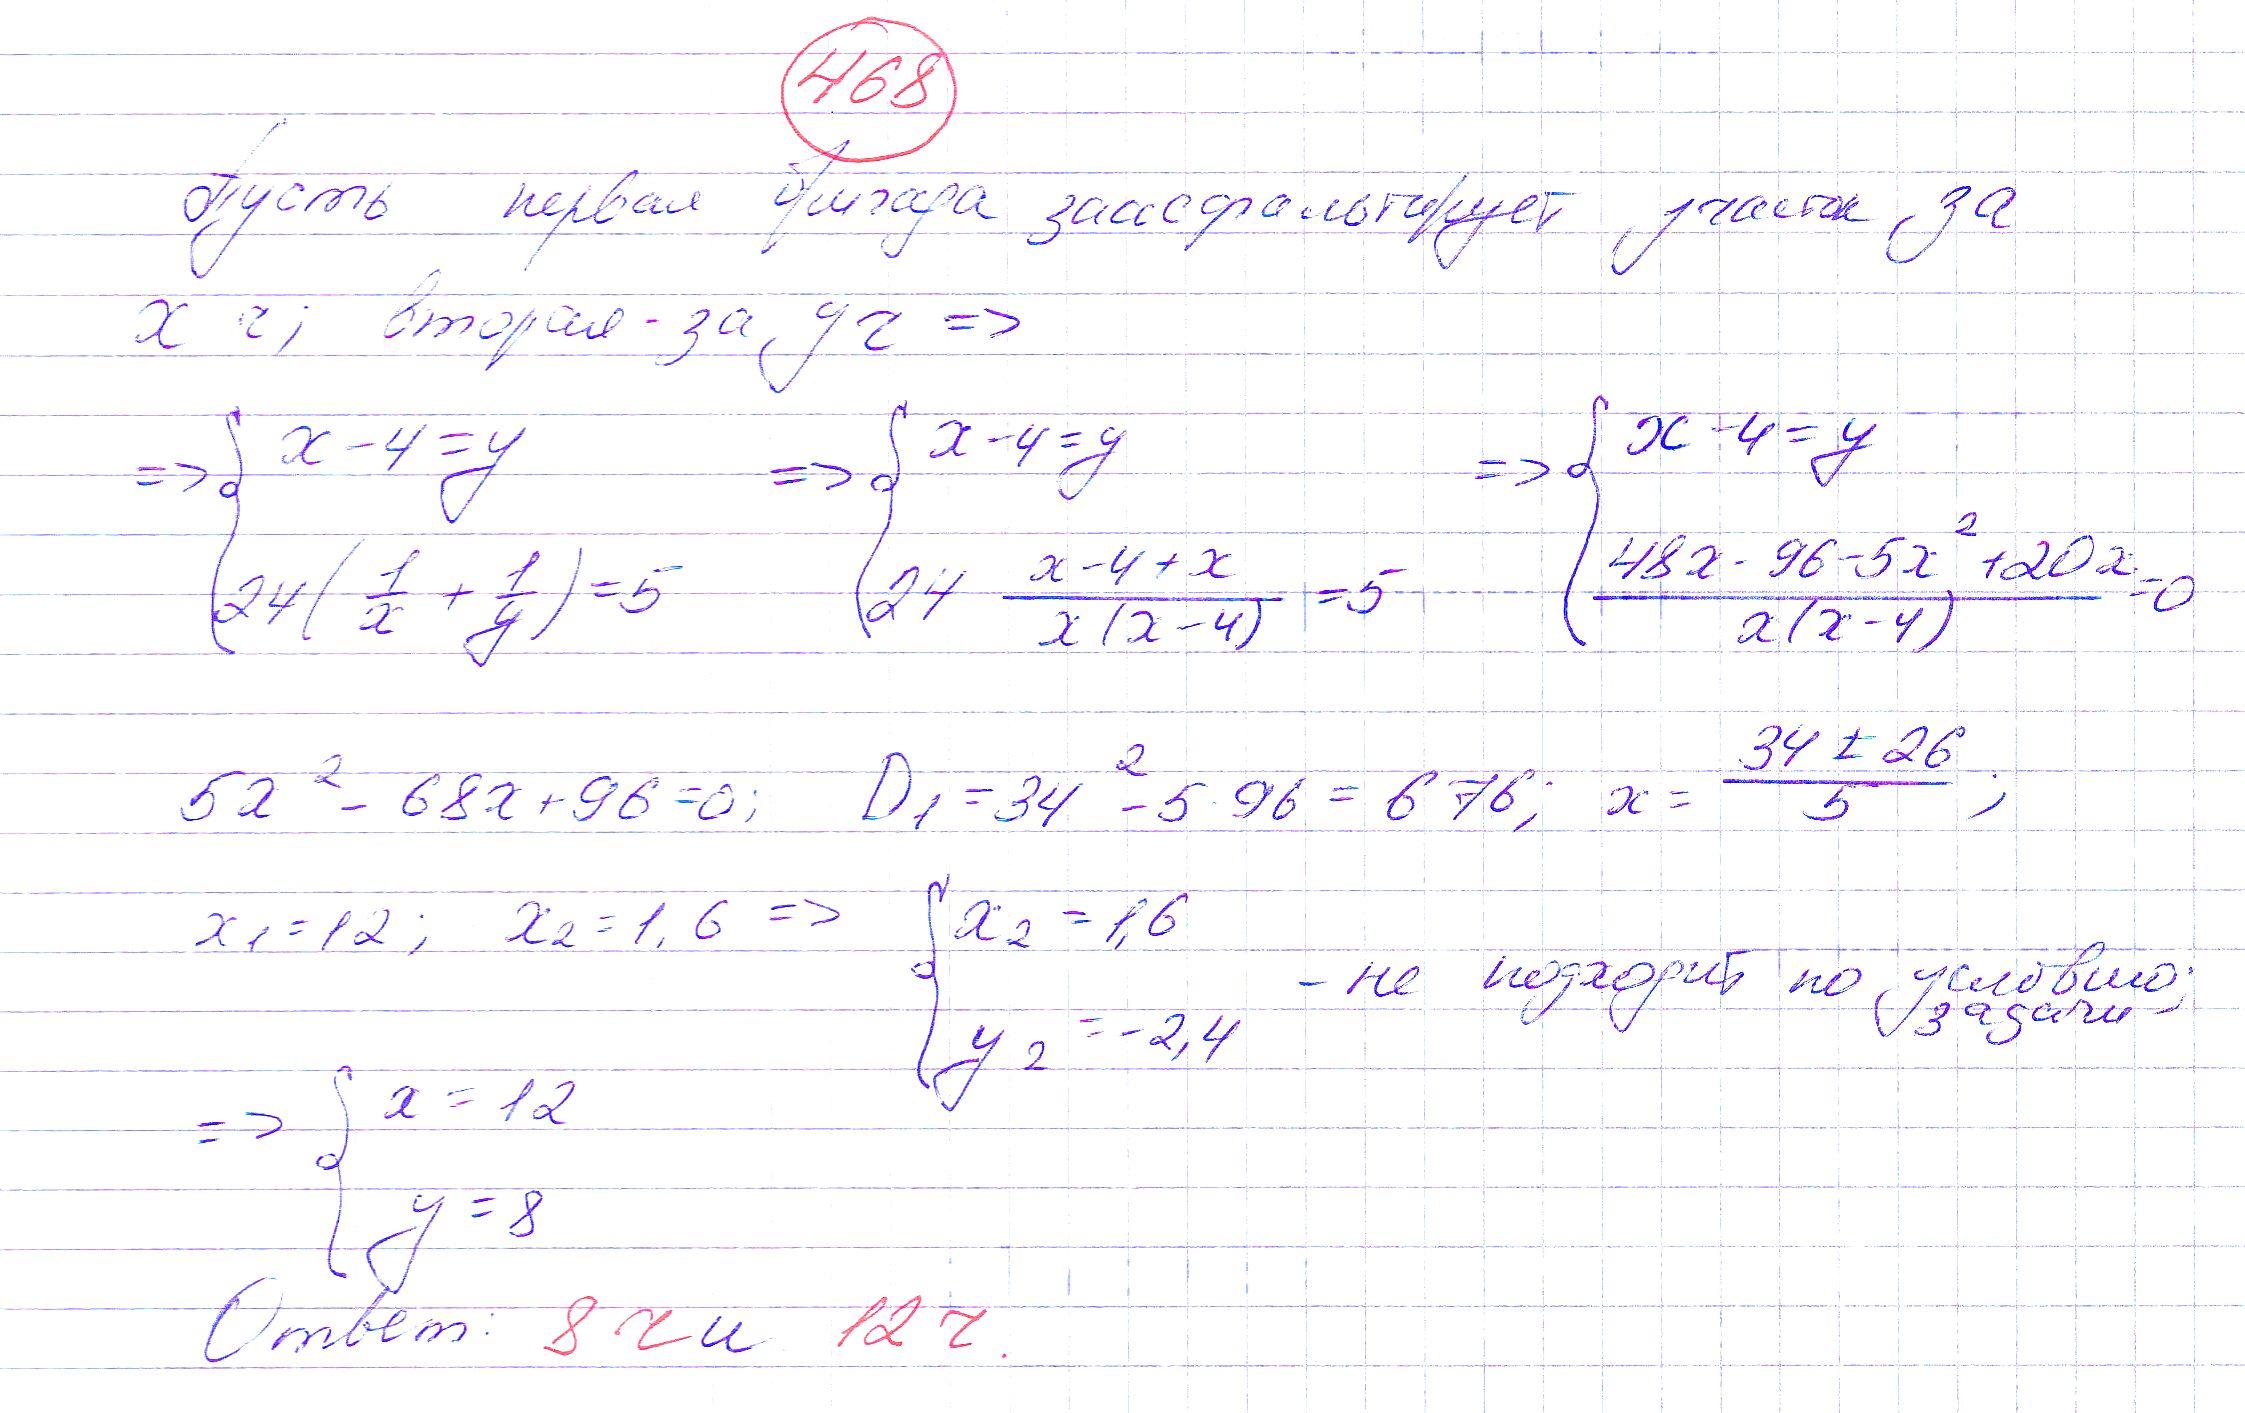 468
Пусть первая бригада заасфальтирует участок за
x ч; вторая - за y ч =>
=> { x - 4 = y => { x - 4 = y => { x - 4 = y
24 (1/x + 1/y) = 5 24 (x - 4 + x)/(x(x - 4)) = 5 (48x - 96 - 5x² + 20x)/(x(x - 4)) = 0
5x² - 68x + 96 = 0; D₁ = 34² - 5·96 = 676; x = (34 ± 26)/5;
x₁ = 12; x₂ = 1,6 => { x₂ = 1,6
y₂ = -2,4 - не подходит по условию задачи;
=> { x = 12
y = 8
Ответ: 8 ч и 12 ч.